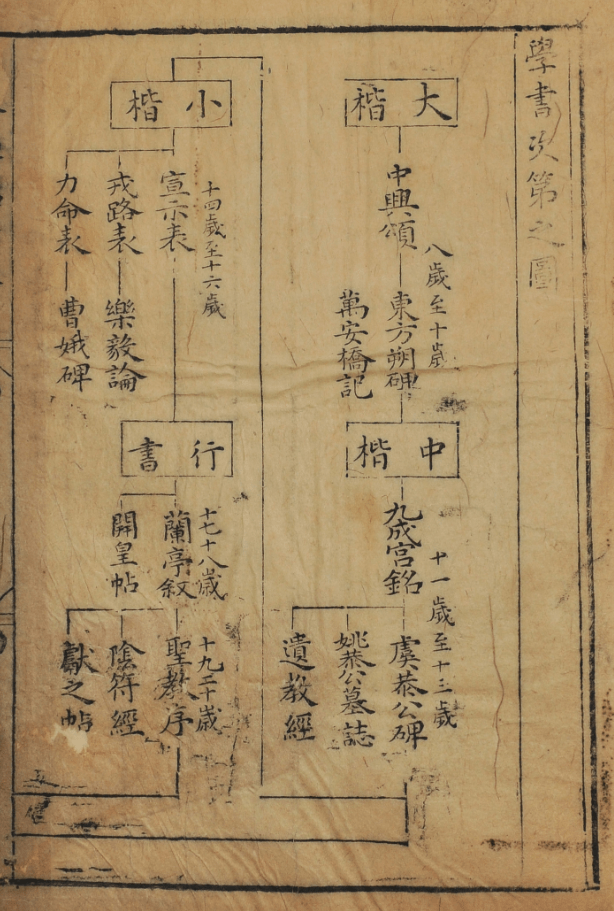 學書次第之圖
大楷
八歲至十歲
中興頌
東方朔碑
萬安橋記
中楷
十一歲至十三歲
九成宮銘
虞恭公碑
姚恭公墓誌
遺教經
小楷
十四歲至十六歲
宣示表
戎路表
樂毅論
力命表
曹娥碑
行書
十七十八歲
蘭亭叙
開皇帖
十九二十歲
聖教序
陰符經
獻之帖